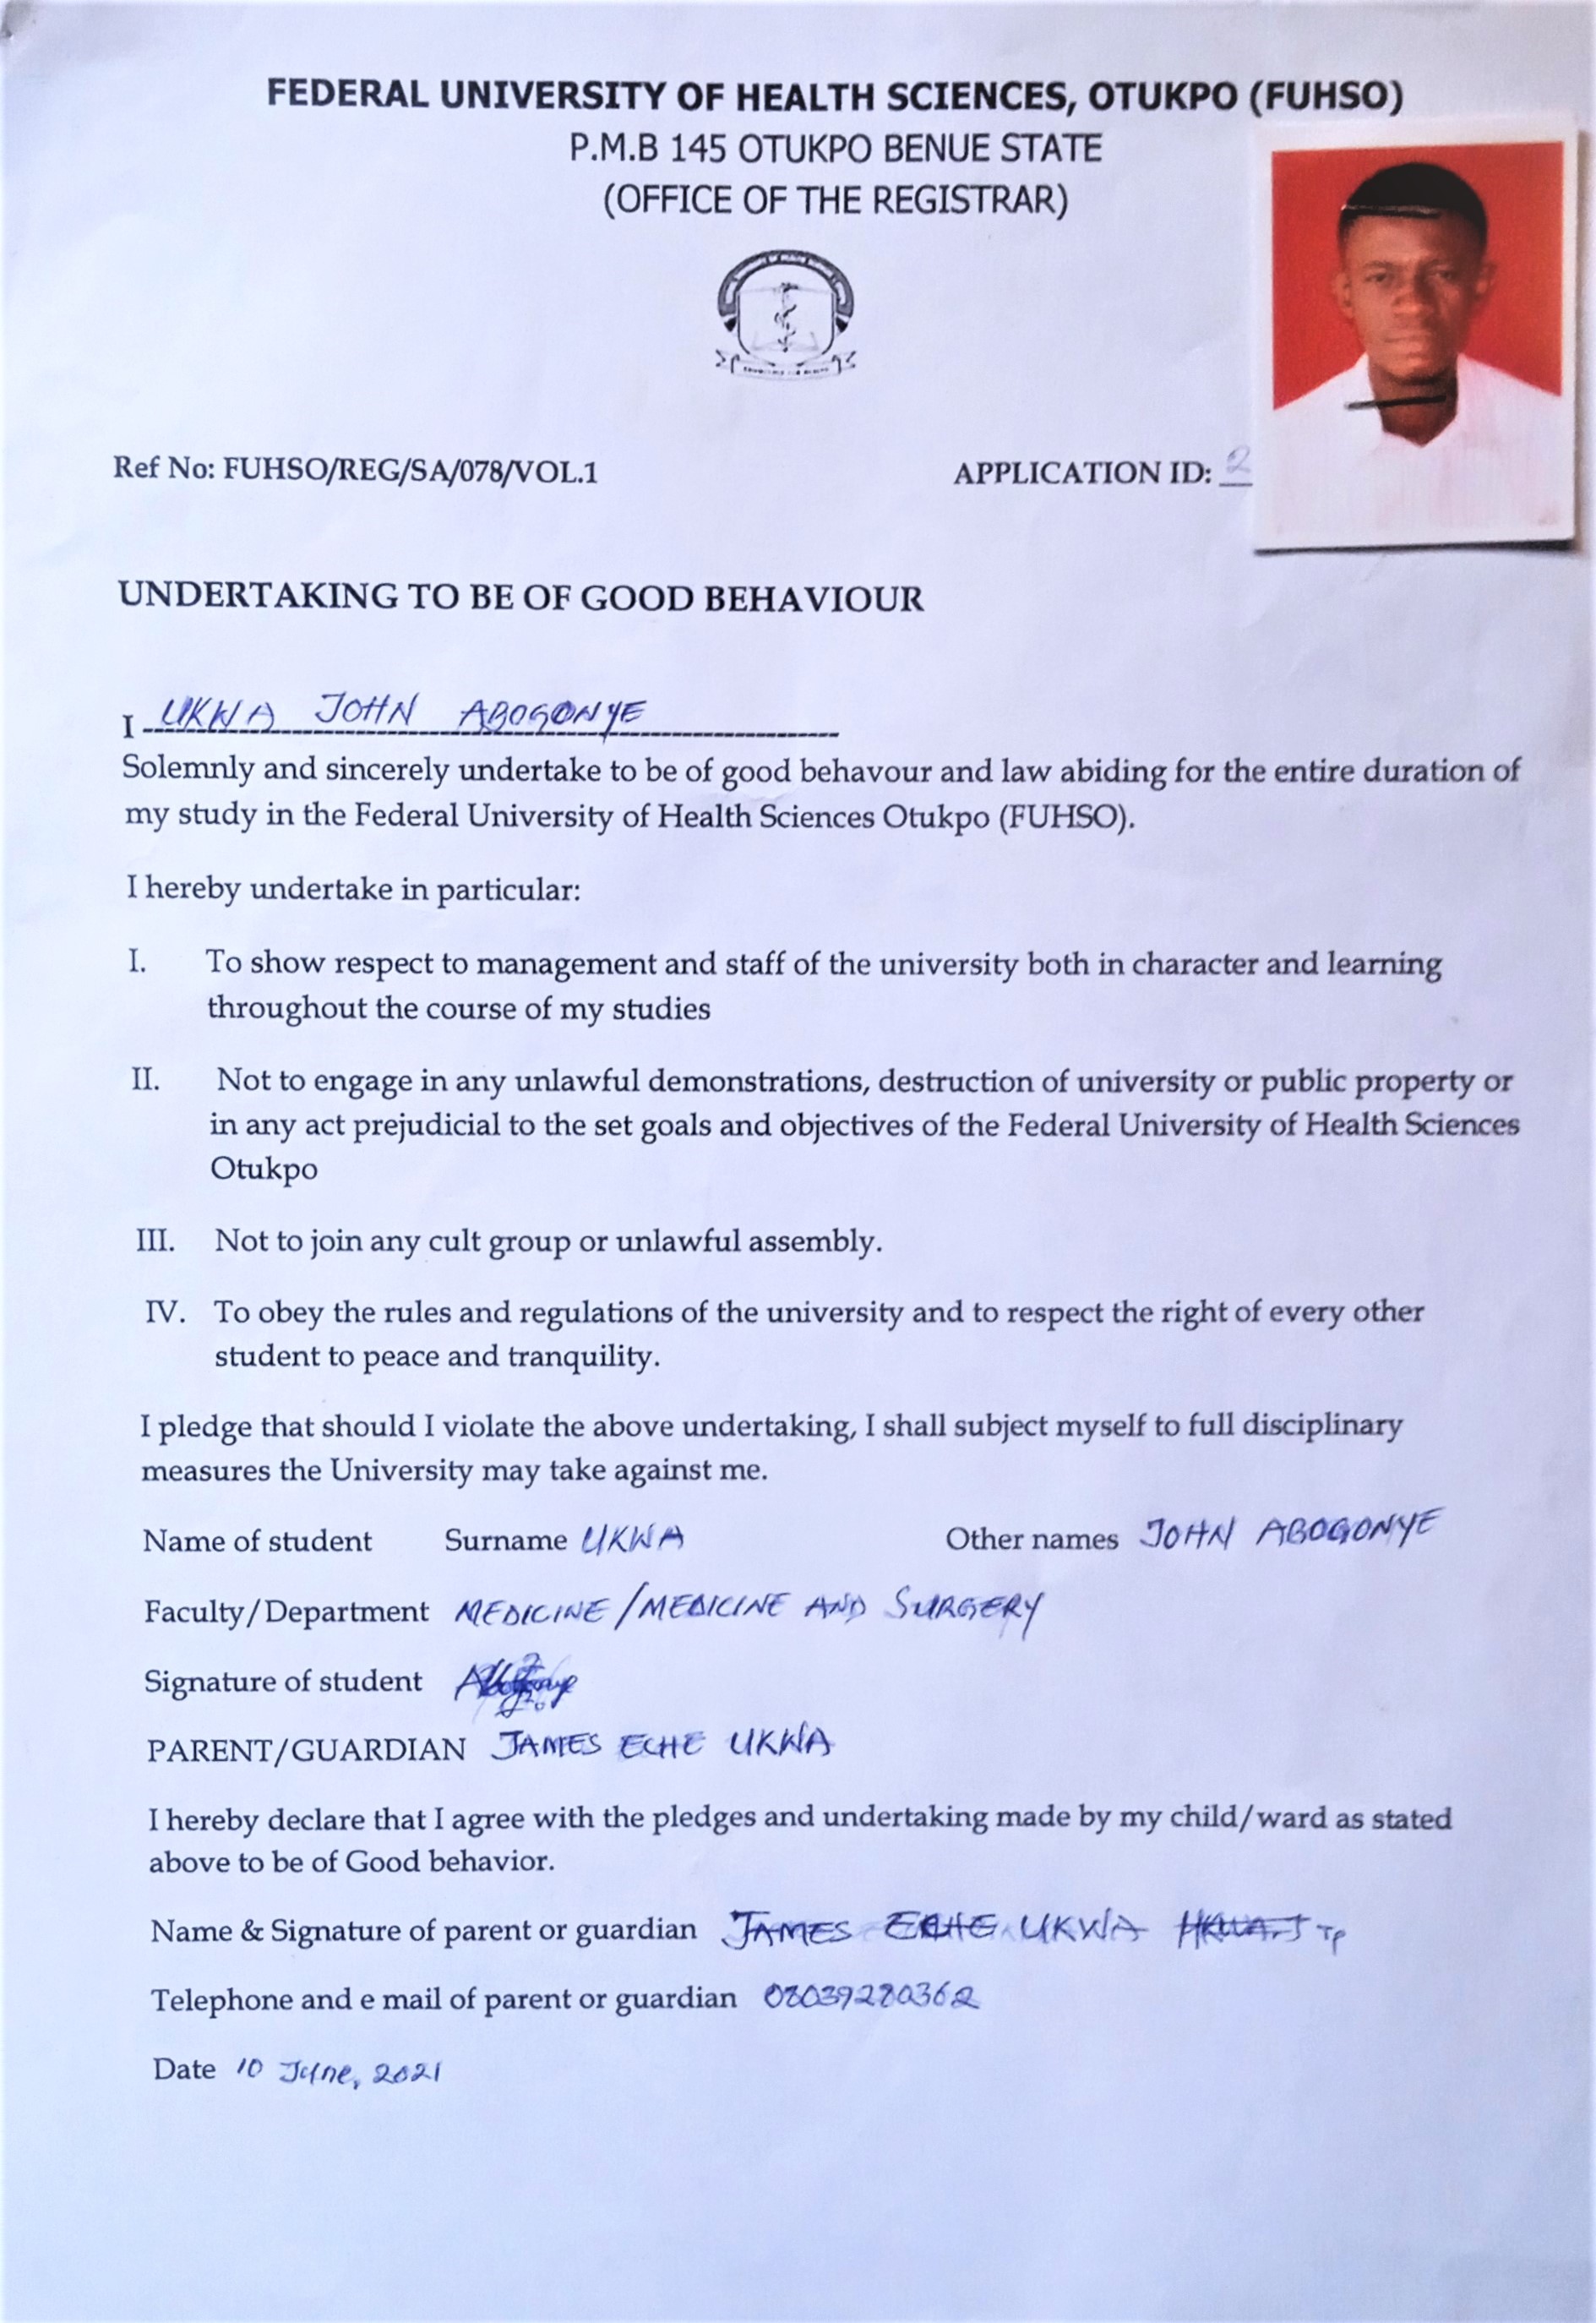 FEDERAL UNIVERSITY OF HEALTH SCIENCES, OTUKPO (FUHSO)
P.M.B 145 OTUKPO BENUE STATE
(OFFICE OF THE REGISTRAR)
Ref No: FUHSO/REG/SA/078/VOL.1 APPLICATION ID: 2
UNDERTAKING TO BE OF GOOD BEHAVIOUR
I UKWA JOHN ABOGONYE
Solemnly and sincerely undertake to be of good behavour and law abiding for the entire duration of
my study in the Federal University of Health Sciences Otukpo (FUHSO).
I hereby undertake in particular:
I. To show respect to management and staff of the university both in character and learning
throughout the course of my studies
II. Not to engage in any unlawful demonstrations, destruction of university or public property or
in any act prejudicial to the set goals and objectives of the Federal University of Health Sciences
Otukpo
III. Not to join any cult group or unlawful assembly.
IV. To obey the rules and regulations of the university and to respect the right of every other
student to peace and tranquility.
I pledge that should I violate the above undertaking, I shall subject myself to full disciplinary
measures the University may take against me.
Name of student Surname UKWA Other names JOHN ABOGONYE
Faculty/Department MEDICINE/MEDICINE AND SURGERY
Signature of student
PARENT/GUARDIAN JAMES ECHE UKWA
I hereby declare that I agree with the pledges and undertaking made by my child/ward as stated
above to be of Good behavior.
Name & Signature of parent or guardian JAMES ECHE UKWA
Telephone and e mail of parent or guardian 08039280362
Date 10 June, 2021